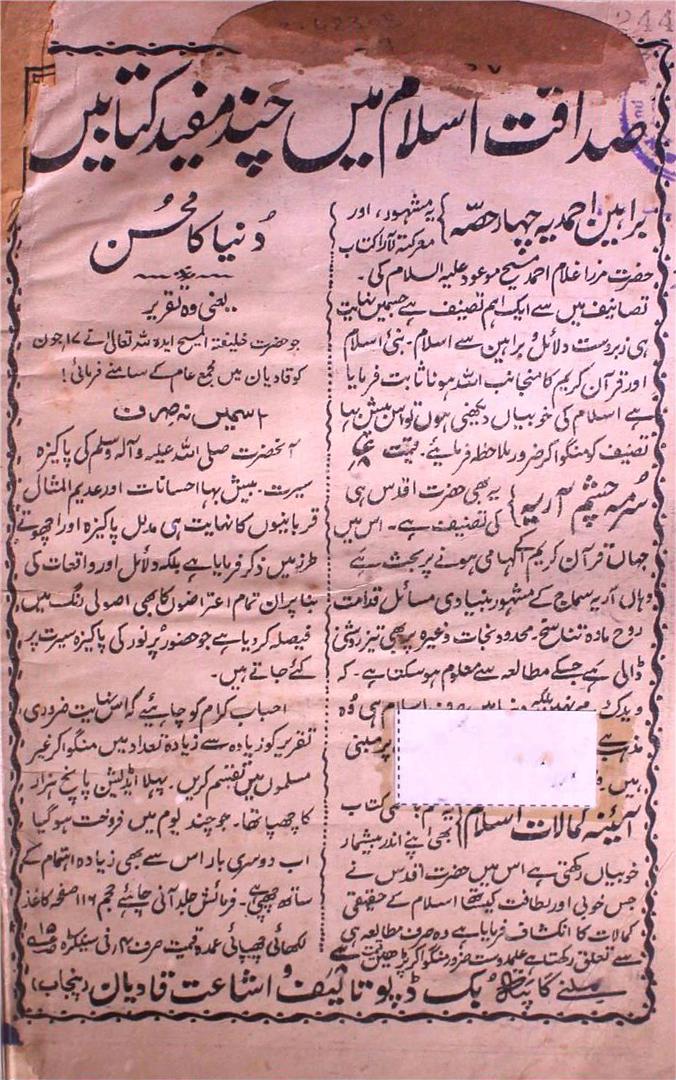 244
صداقت اسلام میں چند مفید کتابیں
براہین احمدیہ چہار حصہ} یہ مشہور، اور
معرکۃ الآرا کتاب
حضرت مرزا غلام احمد مسیح موعود علیہ السلام کی۔
تصانیف میں سے ایک اہم تصنیف ہے جسمیں نہایت
ہی زبردست دلائل و براہین سے اسلام۔ نبئ اسلام
اور قرآن کریم کا منجانب اللہ ہونا ثابت فرمایا
ہے اسلام کی خوبیاں دیکھنی ہوں تو اس بیش بہا
تصنیف کو منگوا کر ضرور ملاحظہ فرمایئے۔ قیمت
سُرمہ چشم آریہ} یہ بھی حضرت اقدس ہی
کی تصنیف ہے۔ اس میں
جہاں قرآن کریم کے الہامی ہونے پر بحث ہے
وہاں آریہ سماج کے مشہور بنیادی مسائل قدامت
روح مادہ تناسخ۔ محدود نجات وغیرہ پر بھی تیز روشنی
ڈالی ہے جسکے مطالعہ سے معلوم ہو سکتا ہے۔ کہ
ویدک اسلام ہی وہ
مذہب ہے پر مبنی
ہیں۔
آئینہ کمالات اسلام} کتاب
بھی اپنے اندر بیشمار
خوبیاں رکھتی ہے اس میں حضرت اقدس نے
جس خوبی اور لطافت کیساتھ اسلام کے حقیقی
کمالات کا انکشاف فرمایا ہے وہ صرف مطالعہ ہی
سے تعلق رکھتا ہے علم دوست ضرور منگوا کر پڑھیں قیمت
دُنیا کا محسن
یعنی وہ تقریر
جو حضرت خلیفۃ المسیح ایدہ اللہ تعالیٰ نے ۱۷ جون
کو قادیان میں مجمع عام کے سامنے فرمائی!
اسمیں نہ صرف
آنحضرت صلی اللہ علیہ وآلہ وسلم کی پاکیزہ
سیرت۔ بیش بہا احسانات اور عدیم المثال
قربانیوں کا نہایت ہی مدلل پاکیزہ اور اچھوتے
طرز میں ذکر فرمایا ہے بلکہ دلائل اور واقعات کی
بنا پر ان تمام اعتراضوں کا بھی اصولی رنگ میں
فیصلہ کر دیا ہے جو حضور پُر نور کی پاکیزہ سیرت پر
کئے جاتے ہیں۔
احباب کرام کو چاہیئے کہ اس نہایت ضروری
تقریر کو زیادہ سے زیادہ تعداد میں منگوا کر غیر
مسلموں میں تقسیم کریں۔ پہلا ایڈیشن پانچ ہزار
کا چھپا تھا۔ جو چند یوم میں فروخت ہو گیا
اب دوسری بار اس سے بھی زیادہ اہتمام کے
ساتھ چھپی ہے۔ فرمائش جلد آنی چاہئے حجم ۱۱۶ صفحہ کاغذ
لکھائی چھپائی عمدہ قیمت صرف ۴؍ فی سینکڑہ
ملنے کا پتہ بک ڈپو تالیف و اشاعت قادیان (پنجاب)